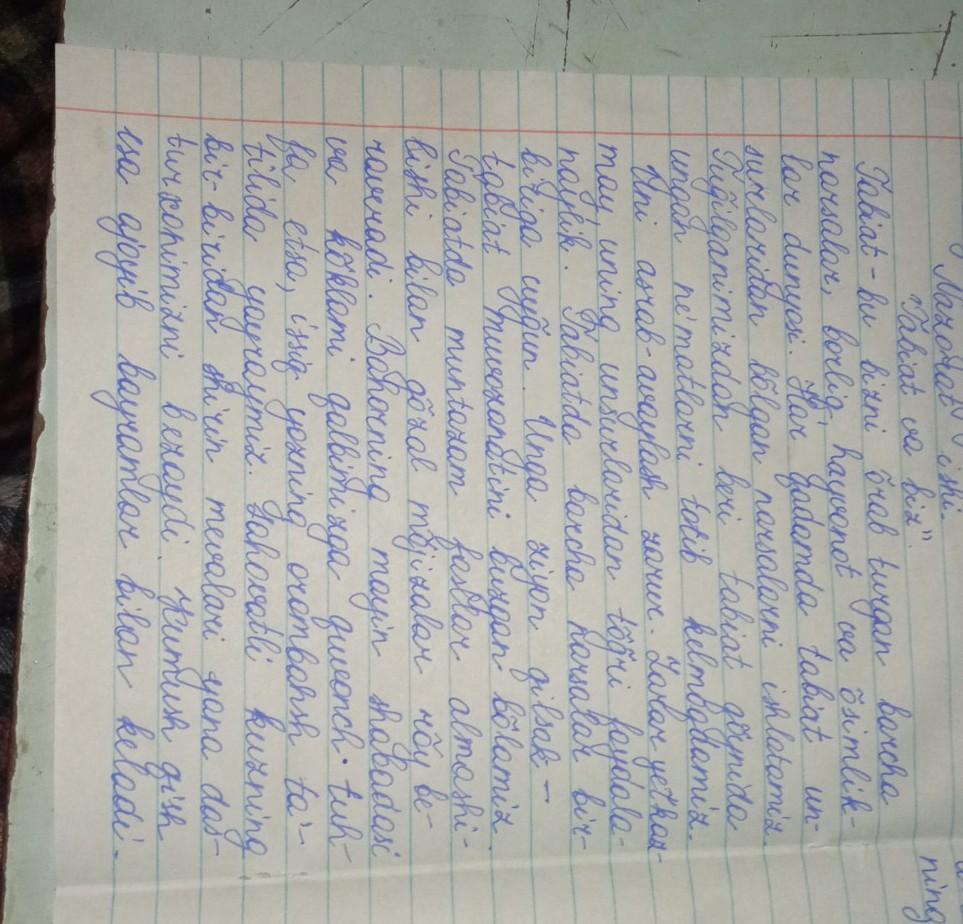 Nazorat ishi.
"Tabiat va biz"
Tabiat - bu bizni õrab turgan barcha
narsalar, borliq, hayvonot va õsimlik-
lar dunyosi. Har qadamda tabiat un-
surlaridan bõlgan narsalarni ishlatamiz.
Tug̃ilganimizdan beri tabiat qõynida
undagi ne'matlarni totib kelmoqdamiz.
Uni asrab-avaylash zarur. Zarar yetkaz-
may, uning unsurlaridan tõg̃ri foydala-
naylik. Tabiatda barcha narsalar bir-
biriga uyg̃un. Unga ziyon qilsak —
tabiat muvozanatini buzgan bõlamiz.
Tabiatda muntazam fasllar almashi-
nishi bilan gõzal mõjizalar rõy be-
raveradi. Bahorning mayin shabadasi
va kõklami qalbimizga quvonch tuh-
fa etsa, issiq yozning orombaxsh ta'-
tilida yayraymiz. Sahovatli kuzning
bir-biridan shirin mevalari yana das-
turxonimizni bezaydi. Yumush qish
esa ajoyib bayramlar bilan keladi.
ning